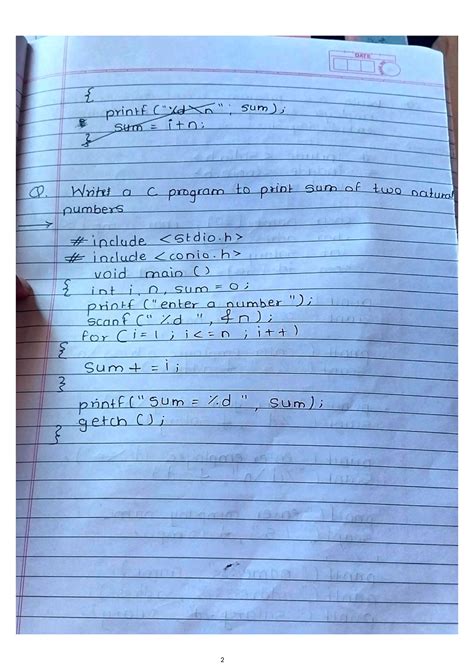 DATE
{
printf ("%d \n" ; sum);
sum = i+n;
}
Q. Write a C program to print sum of two natural
numbers
→
# include <stdio.h>
# include <conio.h>
void main ()
{ int i, n, sum = 0;
printf ("enter a number ");
scanf (" %d ", &n);
for (i=1 ; i<=n ; i++)
{
Sum+ = i;
}
printf("Sum = %d " , sum);
getch ();
}
2